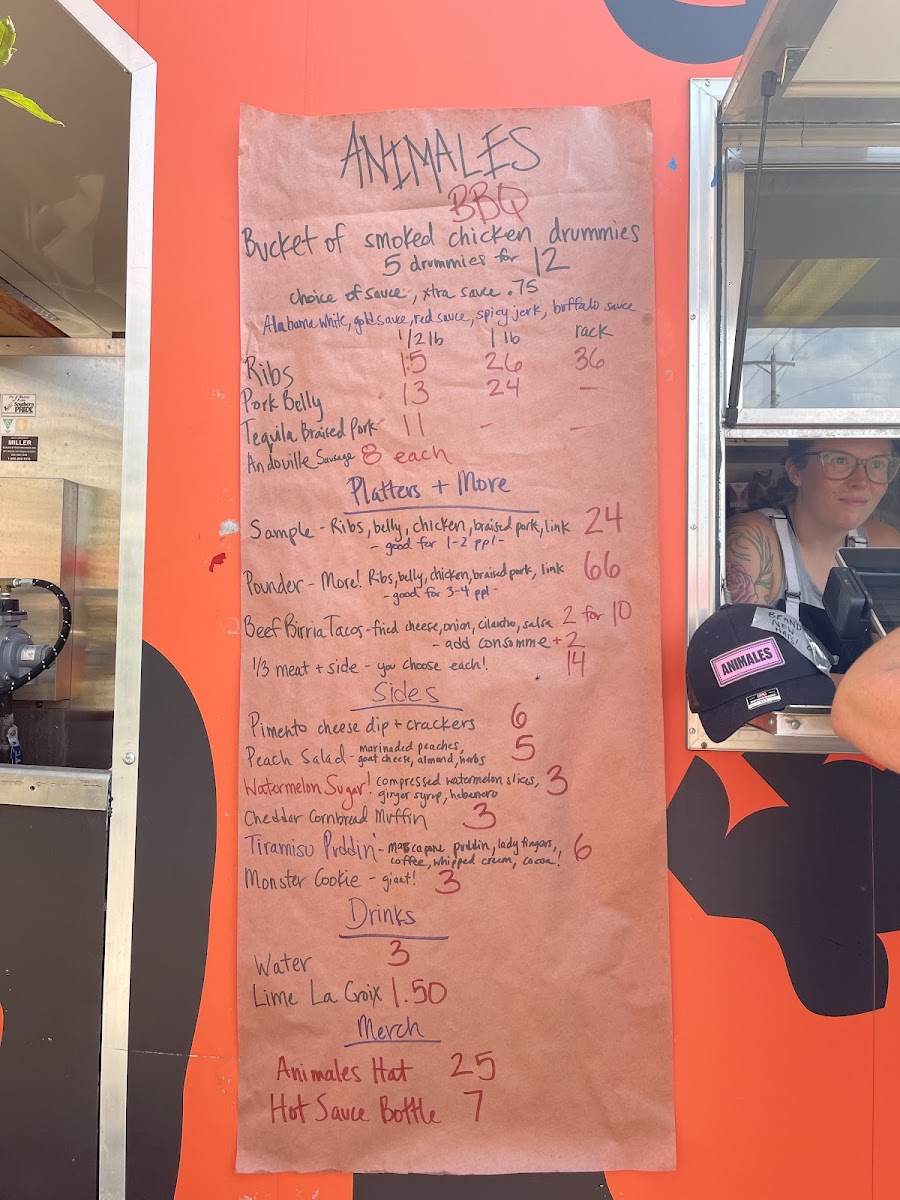 ANIMALES
BBQ
Bucket of smoked chicken drummies
5 drummies for 12
choice of sauce, xtra sauce .75
Alabama White, gold sauce, red sauce, spicy jerk, buffalo sauce
1/2 lb 1 lb rack
Ribs 15 26 36
Pork Belly 13 24 -
Tequila Braised Pork 11 - -
Andoville Sausage 8 each
Platters + More
Sample - Ribs, belly, chicken, braised pork, link 24
- good for 1-2 ppl -
Pounder - More! Ribs, belly, chicken, braised pork, link 66
- good for 3-4 ppl -
Beef Birria Tacos - fried cheese, onion, cilantro, salsa 2 for 10
- add consomme +2
1/3 meat + side - you choose each! 14
Sides
Pimento cheese dip + crackers 6
Peach Salad - marinaded peaches, 5
goat cheese, almond, herbs
Watermelon Sugar! compressed watermelon slices, 3
ginger syrup, habenero
Cheddar Cornbread Muffin 3
Tiramisu Puddin' - mascapone puddin, lady fingers, 6
coffee, whipped cream, cocoa!
Monster Cookie - giant! 3
Drinks
Water 3
Lime La Croix 1.50
Merch
Animales Hat 25
Hot Sauce Bottle 7
BRAND
NEW
ANIMALES
MILLER
PRIDE